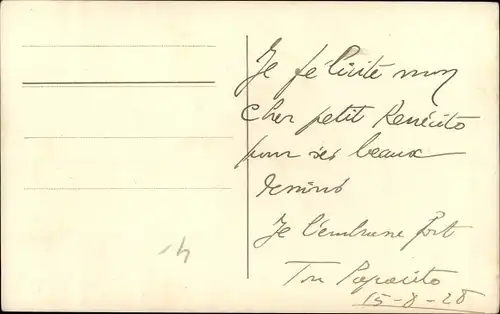 Je félicite mon
cher petit Renécito
pour ses beaux
dessins
Je t'embrasse fort
Ton Papacito
15-8-28
4